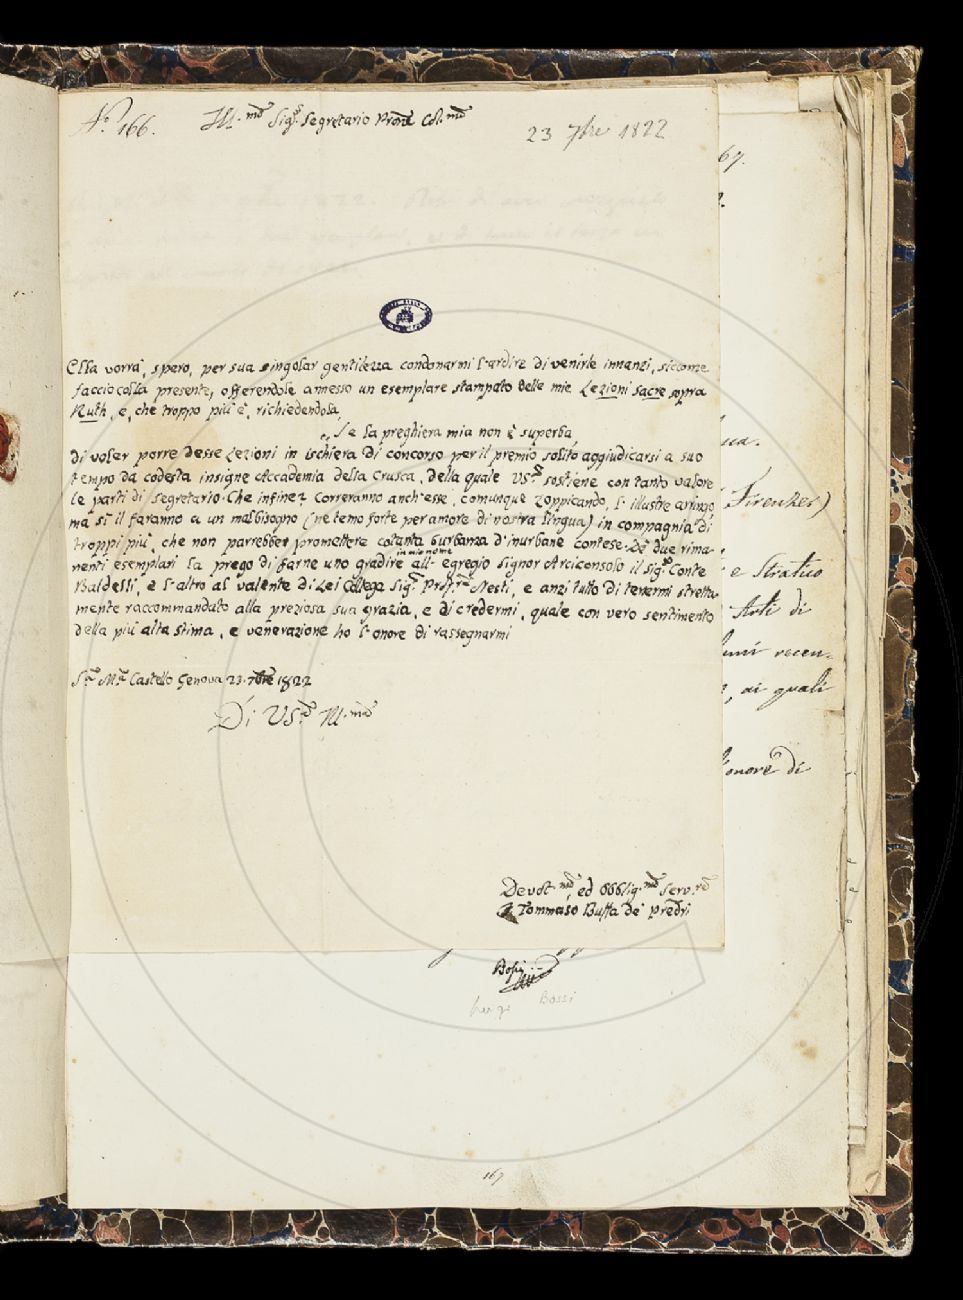 N.° 166.
Ill.mo Sig.r Segretario Pron.e Col.mo
23 7bre 1822
67.
Ella vorrà, spero, per sua singolar gentilezza condonarmi l'ardire di venirle innanzi, siccome
faccio colla presente, offerendole annesso un esemplare stampato delle mie Lezioni Sacre sopra
Ruth, e, che troppo più è, richiedendola,
„ Se la preghiera mia non è superba,
di voler porre desse Lezioni in ischiera di concorso per il premio solito aggiudicarsi a suo
tempo da codesta insigne Accademia della Crusca, della quale VS.a sostiene con tanto valore
le parti di Segretario. Che infine? Correranno anch'esse, comunque zoppicando, l'illustre aringo,
ma sì il faranno a un malbisogno (ne temo forte per amore di nostra lingua) in compagnia di
troppi più, che non parrebbe promettere cotanta burbanza d'inurbane contese. De' due rima-
nenti esemplari la prego di farne uno gradire in mio nome all'egregio Signor Arciconsolo il Sig.r Conte
Baldelli, e l'altro al valente di Lei Collega Sig.r Prof.re Nesti, e anzi tutto di tenermi stretta-
mente raccommandato alla preziosa sua grazia, e di credermi, quale con vero sentimento
della più alta stima, e venerazione ho l'onore di rassegnarmi
S.ta M.a Castello Genova 23. 7bre 1822
Di VS.a Ill.ma
Devot.mo ed Obblig.mo Serv.re
F. Tommaso Buffa de' Pred.ri
Firenze)
e Stratico
Arti di
recen-
, ai quali
onore di
Bossi
Luigi Bossi
167